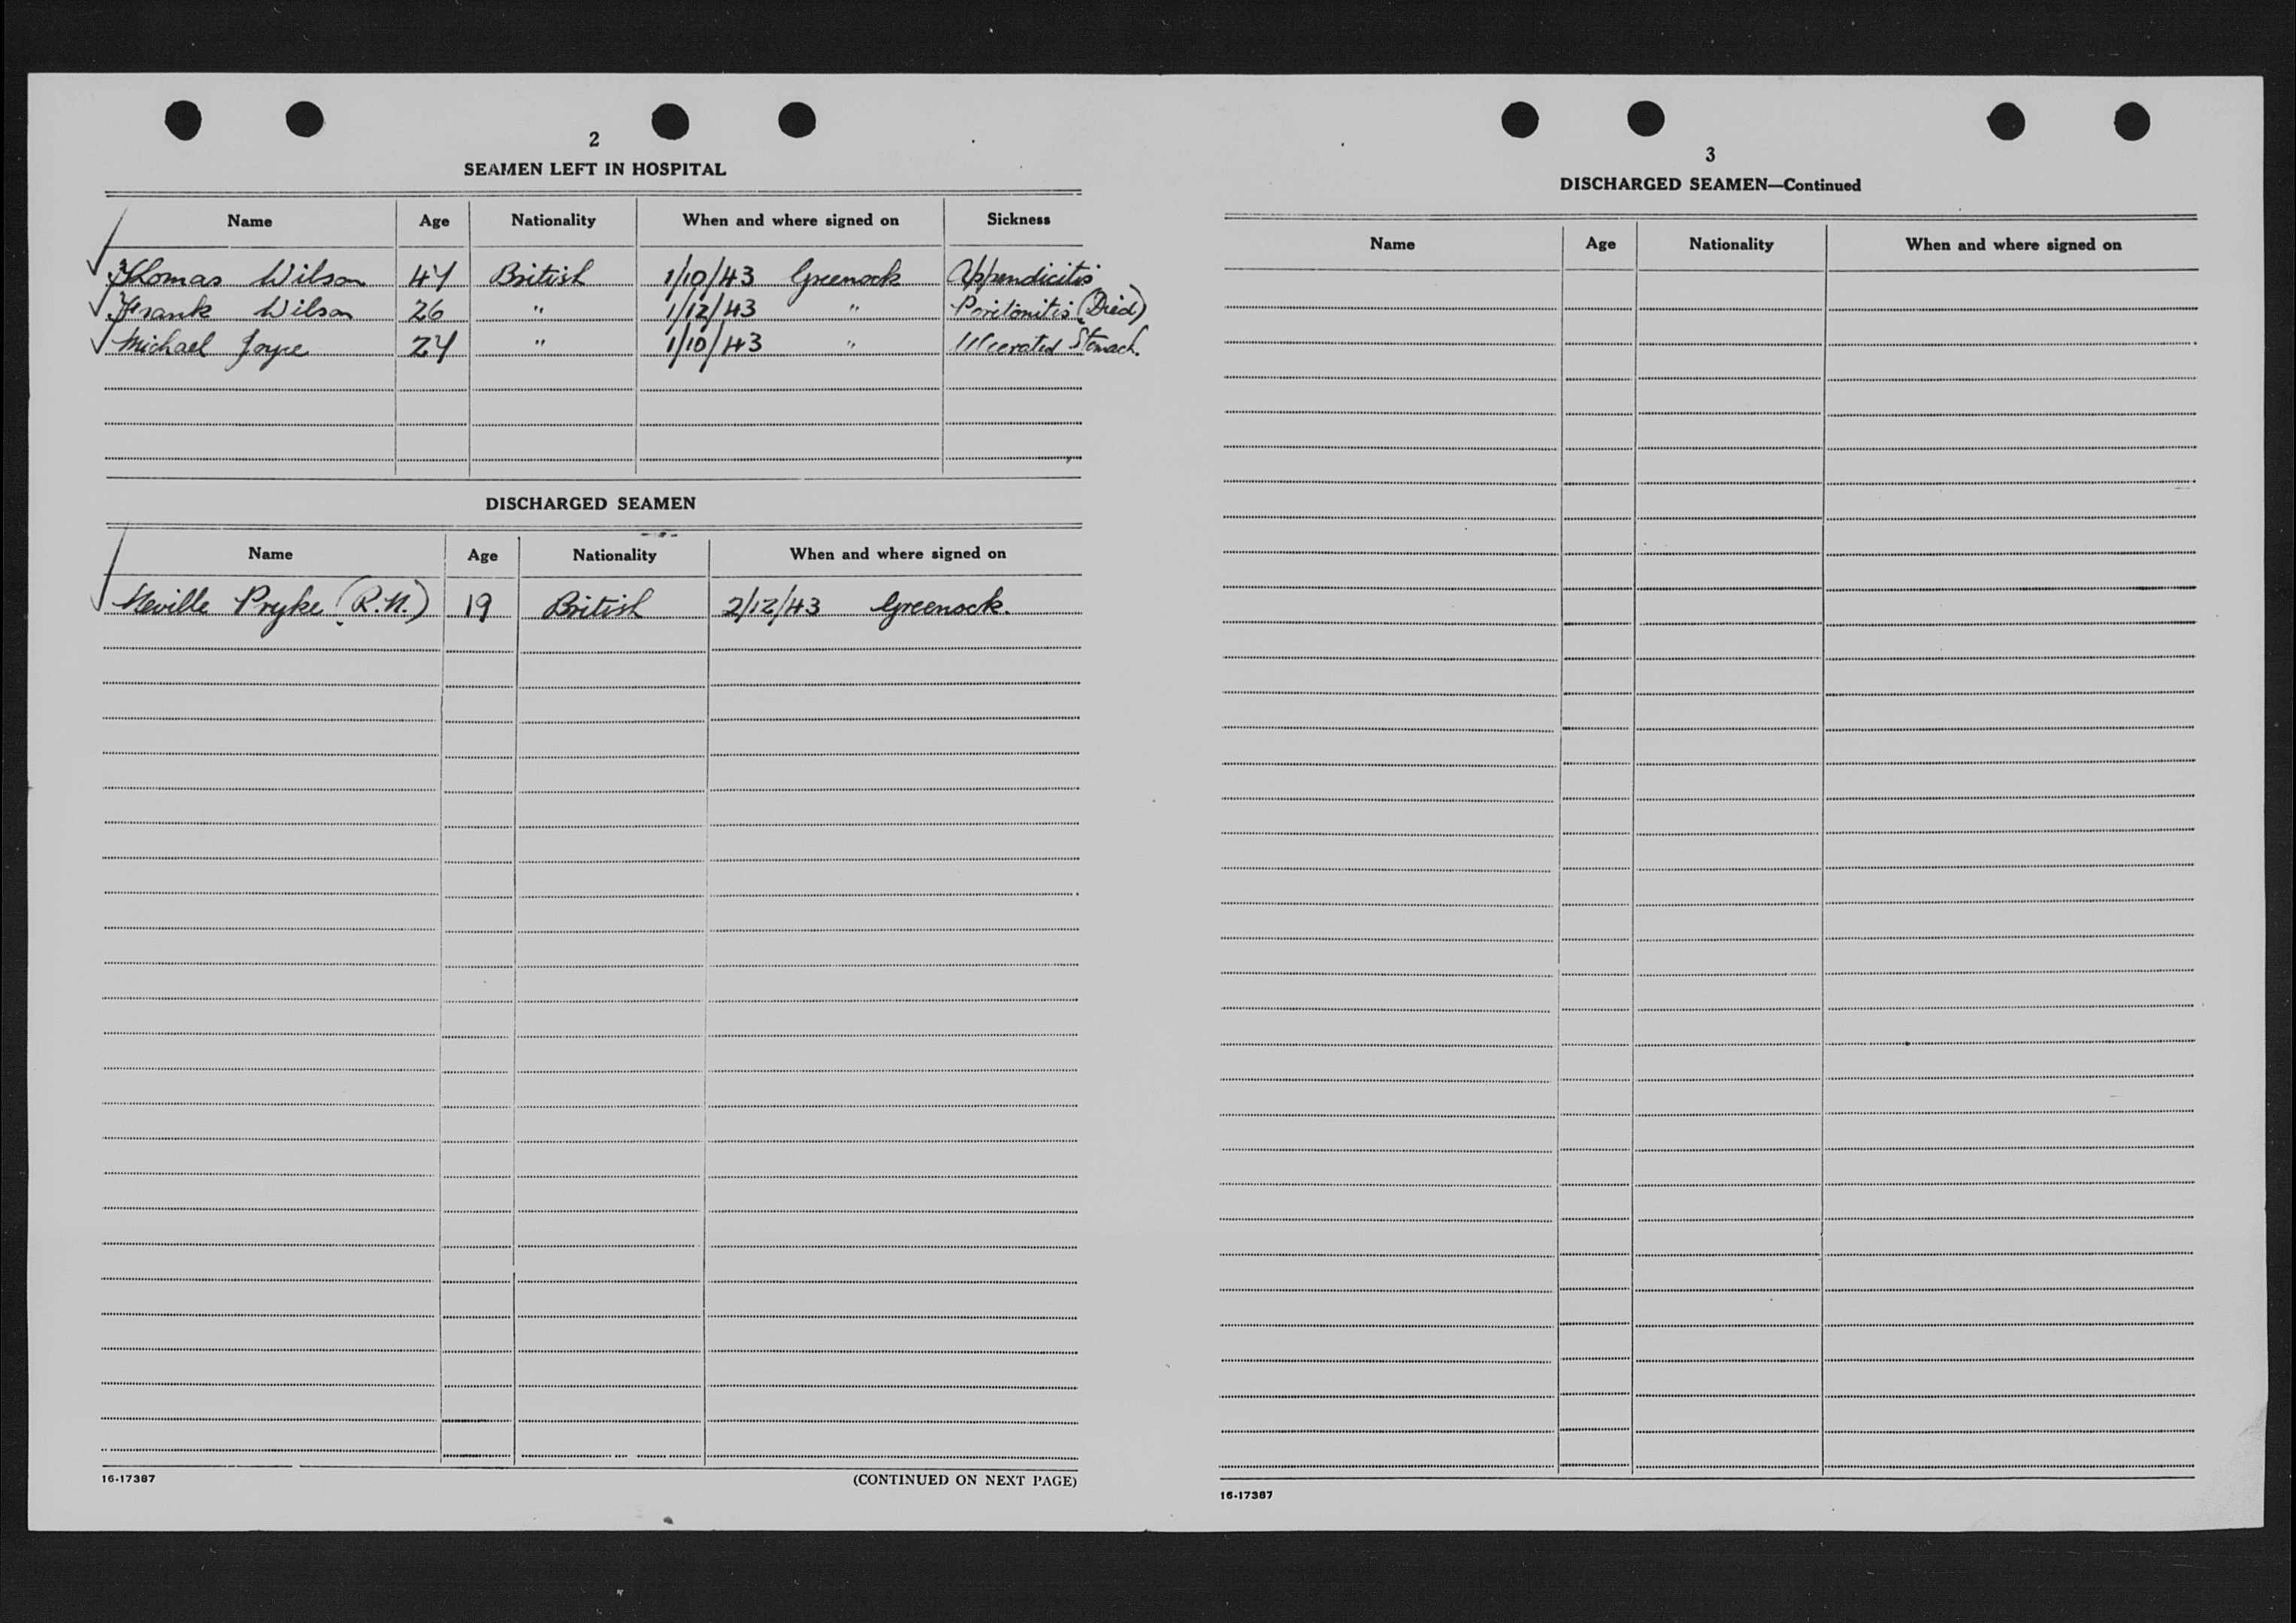 2
SEAMEN LEFT IN HOSPITAL
Name Age Nationality When and where signed on Sickness
Thomas Wilson 47 British 1/10/43 Greenock Appendicitis
Frank Wilson 26 " 1/12/43 " Poritonitis (Died)
Michael Joyce 24 " 1/10/43 " Ulcerated Stomach.
DISCHARGED SEAMEN
Name Age Nationality When and where signed on
Neville Pryke (R.N.) 19 British 2/12/43 Greenock.
16-17387
(CONTINUED ON NEXT PAGE)
3
DISCHARGED SEAMEN—Continued
Name Age Nationality When and where signed on
16-17387